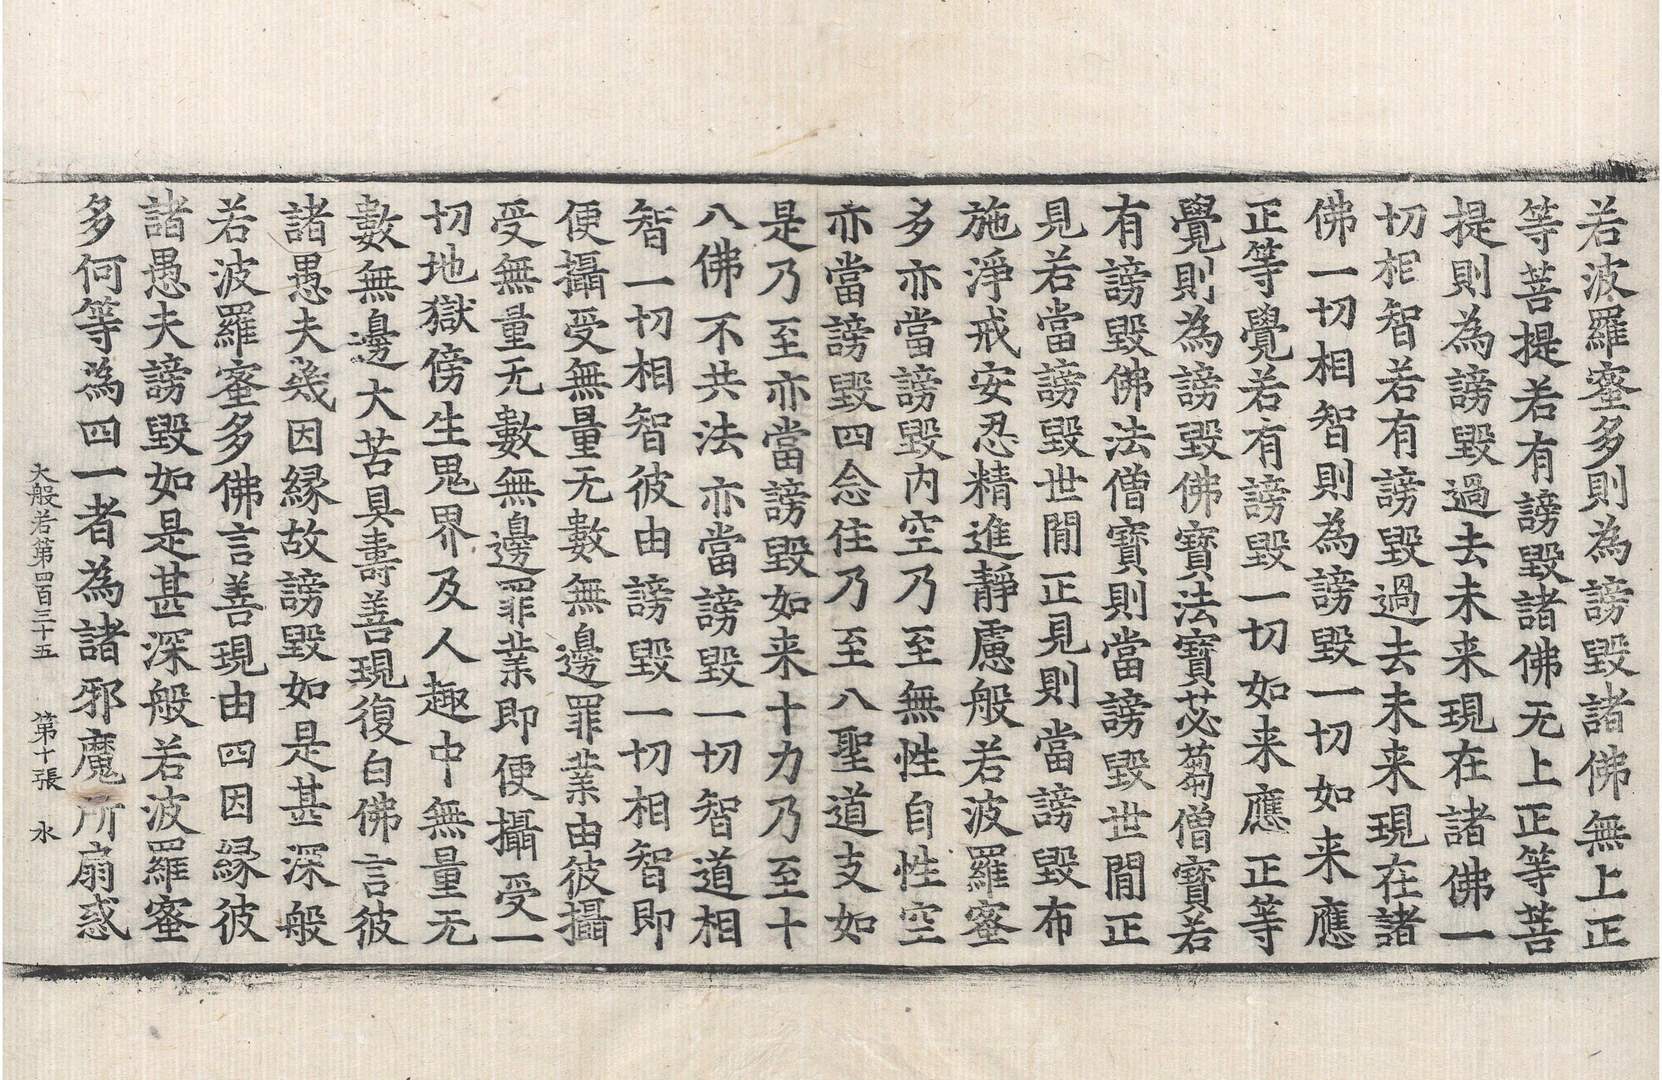 若波羅蜜多則為謗毀諸佛無上正
等菩提若有謗毀諸佛无上正等菩
提則為謗毀過去未来現在諸佛一
切相智若有謗毀過去未来現在諸
佛一切相智則為謗毀一切如来應
正等覺若有謗毀一切如来應正等
覺則為謗毀佛寶法寶苾蒭僧寶若
有謗毀佛法僧寶則當謗毀世間正
見若當謗毀世間正見則當謗毀布
施淨戒安忍精進靜慮般若波羅蜜
多亦當謗毀内空乃至無性自性空
亦當謗毀四念住乃至八聖道支如
是乃至亦當謗毀如来十力乃至十
八佛不共法亦當謗毀一切智道相
智一切相智彼由謗毀一切相智即
便攝受無量无數無邊罪業由彼攝
受無量无數無邊罪業即便攝受一
切地獄傍生鬼界及人趣中無量无
數無邊大苦具壽善現復白佛言彼
諸愚夫幾因緣故謗毀如是甚深般
若波羅蜜多佛言善現由四因緣彼
諸愚夫謗毀如是甚深般若波羅蜜
多何等為四一者為諸邪魔所扇惑
大般若第四百三十五 第十張 水